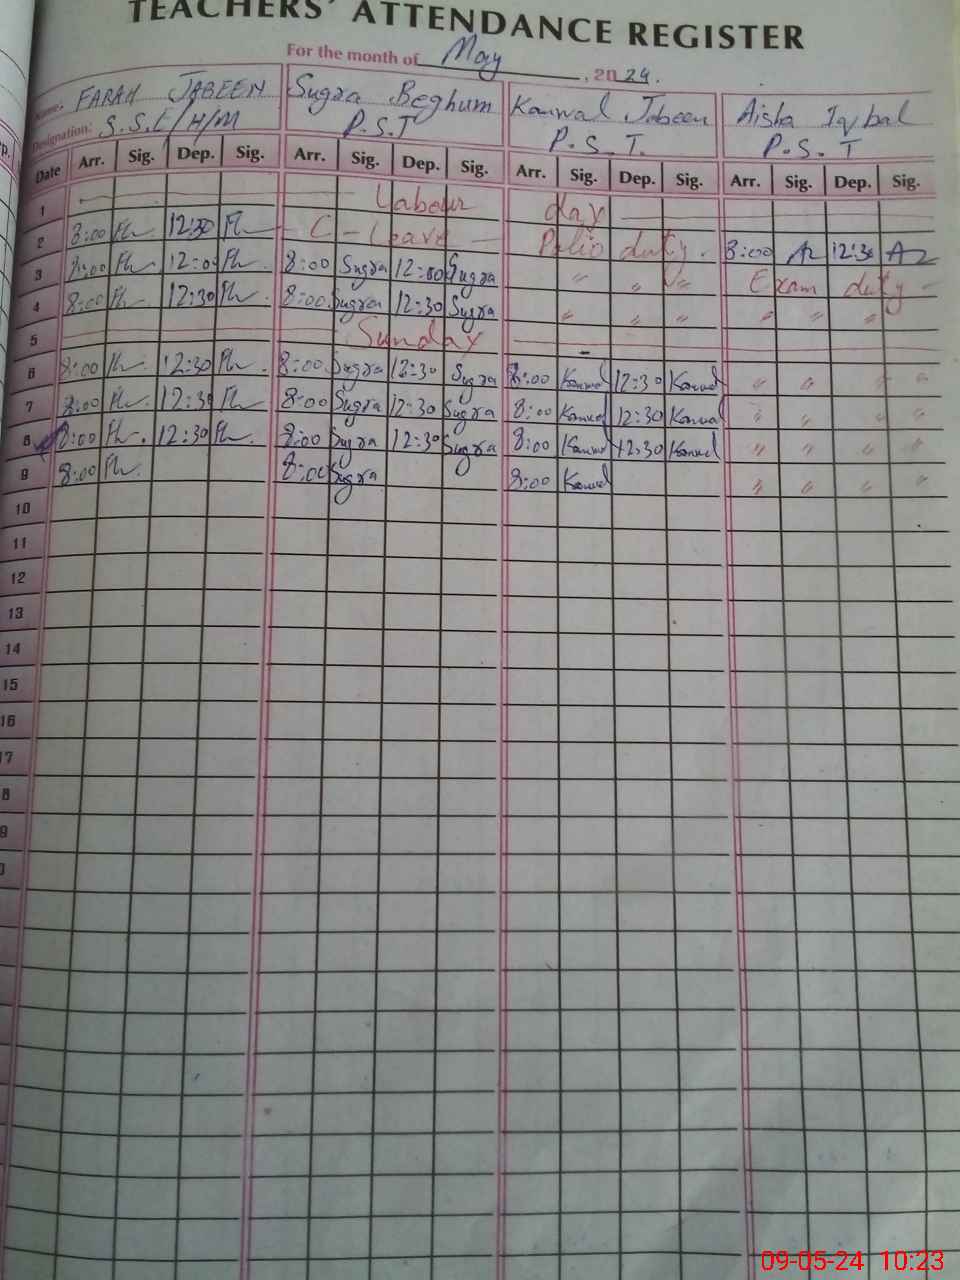 TEACHERS' ATTENDANCE REGISTER
For the month of May, 2024.
Name: FARAH JABEEN Sugra Beghum Kanwal Jabeen Aisha Iqbal
Designation: S.S.E/H/M P.S.T P.S.T. P.S.T
Date Arr. Sig. Dep. Sig. Arr. Sig. Dep. Sig. Arr. Sig. Dep. Sig. Arr. Sig. Dep. Sig.
1 Labour day
2 8:00 Fh 12:30 Fh C-Leave Polio duty. 8:00 12:30
3 8:00 Fh 12:00 Fh 8:00 Sugra 12:00 Sugra " " " Exam duty
4 8:00 Fh 12:30 Fh 8:00 Sugra 12:30 Sugra " " " " " "
5 Sunday
6 8:00 Fh 12:30 Fh 8:00 Sugra 12:30 Sugra 8:00 Kanwal 12:30 Kanwal " " " "
7 8:00 Fh 12:30 Fh 8:00 Sugra 12:30 Sugra 8:00 Kanwal 12:30 Kanwal " " " "
8 8:00 Fh 12:30 Fh 8:00 Sugra 12:30 Sugra 8:00 Kanwal 12:30 Kanwal " " " "
9 8:00 Fh 8:00 Sugra 8:00 Kanwal " " " "
10
11
12
13
14
15
16
17
8
9
0
09-05-24 10:23